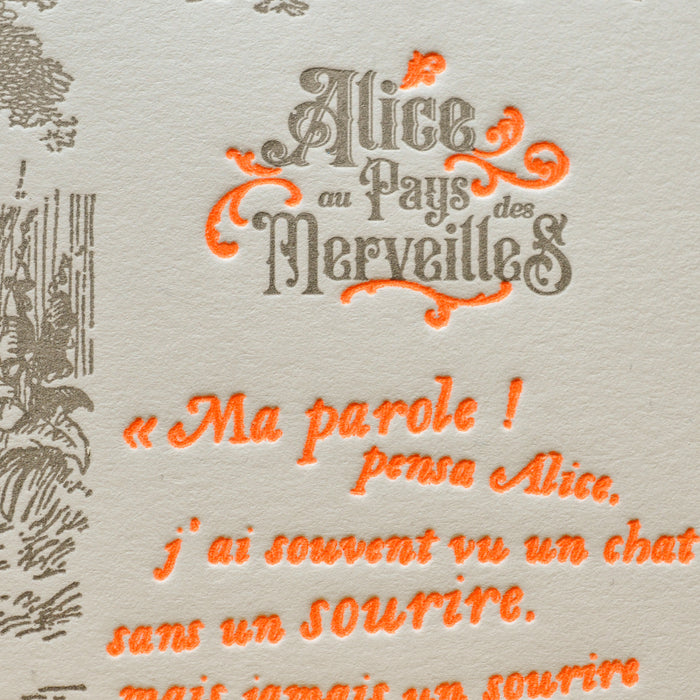 Alice
au Pays des
Merveilles
« Ma parole !
pensa Alice,
j'ai souvent vu un chat
sans un sourire.
mais jamais un sourire